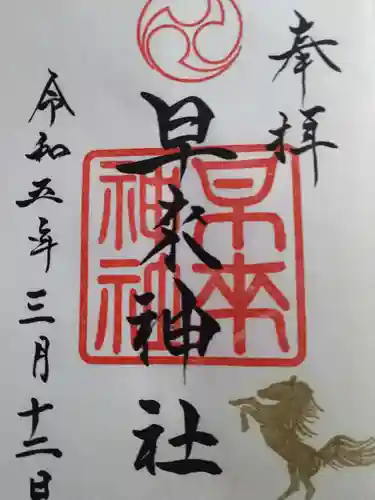 奉拝
早来神社
早来
神社
令和五年三月十二日